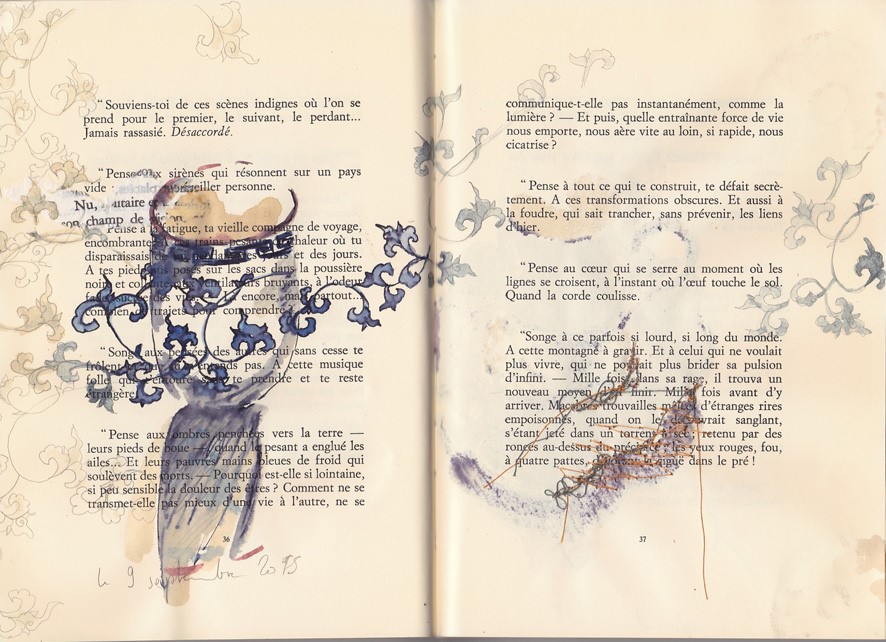 “Souviens-toi de ces scènes indignes où l’on se
prend pour le premier, le suivant, le perdant...
Jamais rassasié. Désaccordé.
“Pense aux sirènes qui résonnent sur un pays
vide réveiller personne.
Nu,
champ de
Pense à la fatigue, ta vieille compagne de voyage,
encombrante. A ces trains chaleur où tu
disparaissais et des jours.
A tes pieds nus posés sur les sacs dans la poussière
noire et ventilateurs bruyants, à l’odeur
encore, partout...
combien de trajets pour comprendre
“Songe aux pensées des autres qui sans cesse te
frôlent pas. A cette musique
folle qui t’entoure te prendre et te reste
étrangère.
“Pense aux ombres penchées vers la terre —
leurs pieds de boue — quand le pesant a englué les
ailes... Et leurs pauvres mains bleues de froid qui
soulèvent des morts. — Pourquoi est-elle si lointaine,
si peu sensible la douleur des êtres ? Comment ne se
transmet-elle pas mieux d’une vie à l’autre, ne se
36
le 9 septembre 2015
communique-t-elle pas instantanément, comme la
lumière ? — Et puis, quelle entraînante force de vie
nous emporte, nous aère vite au loin, si rapide, nous
cicatrise ?
“Pense à tout ce qui te construit, te défait secrè-
tement. A ces transformations obscures. Et aussi à
la foudre, qui sait trancher, sans prévenir, les liens
d’hier.
“Pense au cœur qui se serre au moment où les
lignes se croisent, à l’instant où l’œuf touche le sol.
Quand la corde coulisse.
“Songe à ce parfois si lourd, si long du monde.
A cette montagne à gravir. Et à celui qui ne voulait
plus vivre, qui ne pouvait plus brider sa pulsion
d’infini. — Mille fois, dans sa rage, il trouva un
nouveau moyen d’en finir. Mille fois avant d’y
arriver. Macabres trouvailles mêlées d’étranges rires
empoisonnés, quand on le découvrait sanglant,
s’étant jeté dans un torrent à sec, retenu par des
ronces au-dessus du précipice ; les yeux rouges, fou,
à quatre pattes, la gigue dans le pré !
37